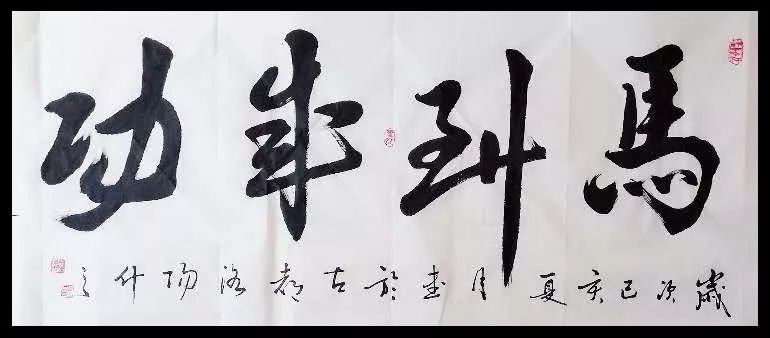 馬到成功
歲次己亥夏月書於古都洛陽什之